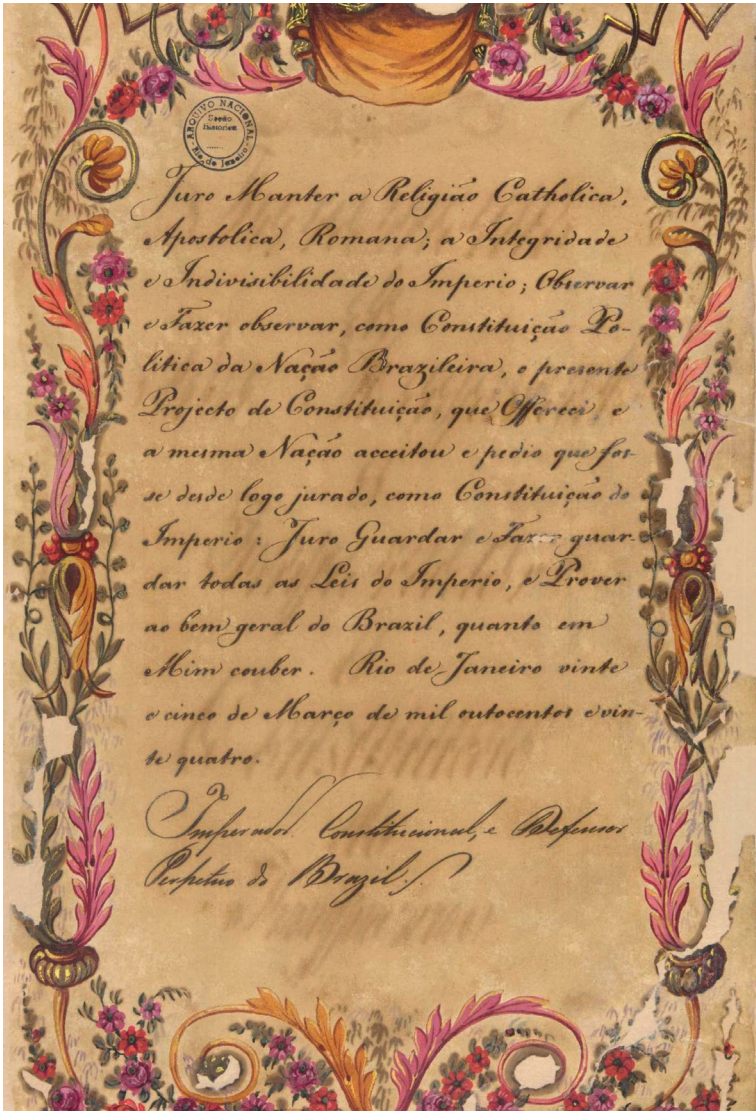 ARQUIVO NACIONAL
Secção
Historica
Rio de Janeiro
Juro Manter a Religião Catholica,
Apostolica, Romana; a Integridade
e Indivisibilidade do Imperio; Observar
e Fazer observar, como Constituição Po-
litica da Nação Brazileira, o presente
Projecto de Constituição, que Offereci, e
a mesma Nação acceitou e pedio que fos-
se desde logo jurado, como Constituição do
Imperio: Juro Guardar e Fazer guar-
dar todas as Leis do Imperio, e Prover
ao bem geral do Brazil, quanto em
Mim couber. Rio de Janeiro vinte
e cinco de Março de mil outocentos e vin-
te quatro.
Imperador Constitucional, e Defensor
Perpetuo do Brazil